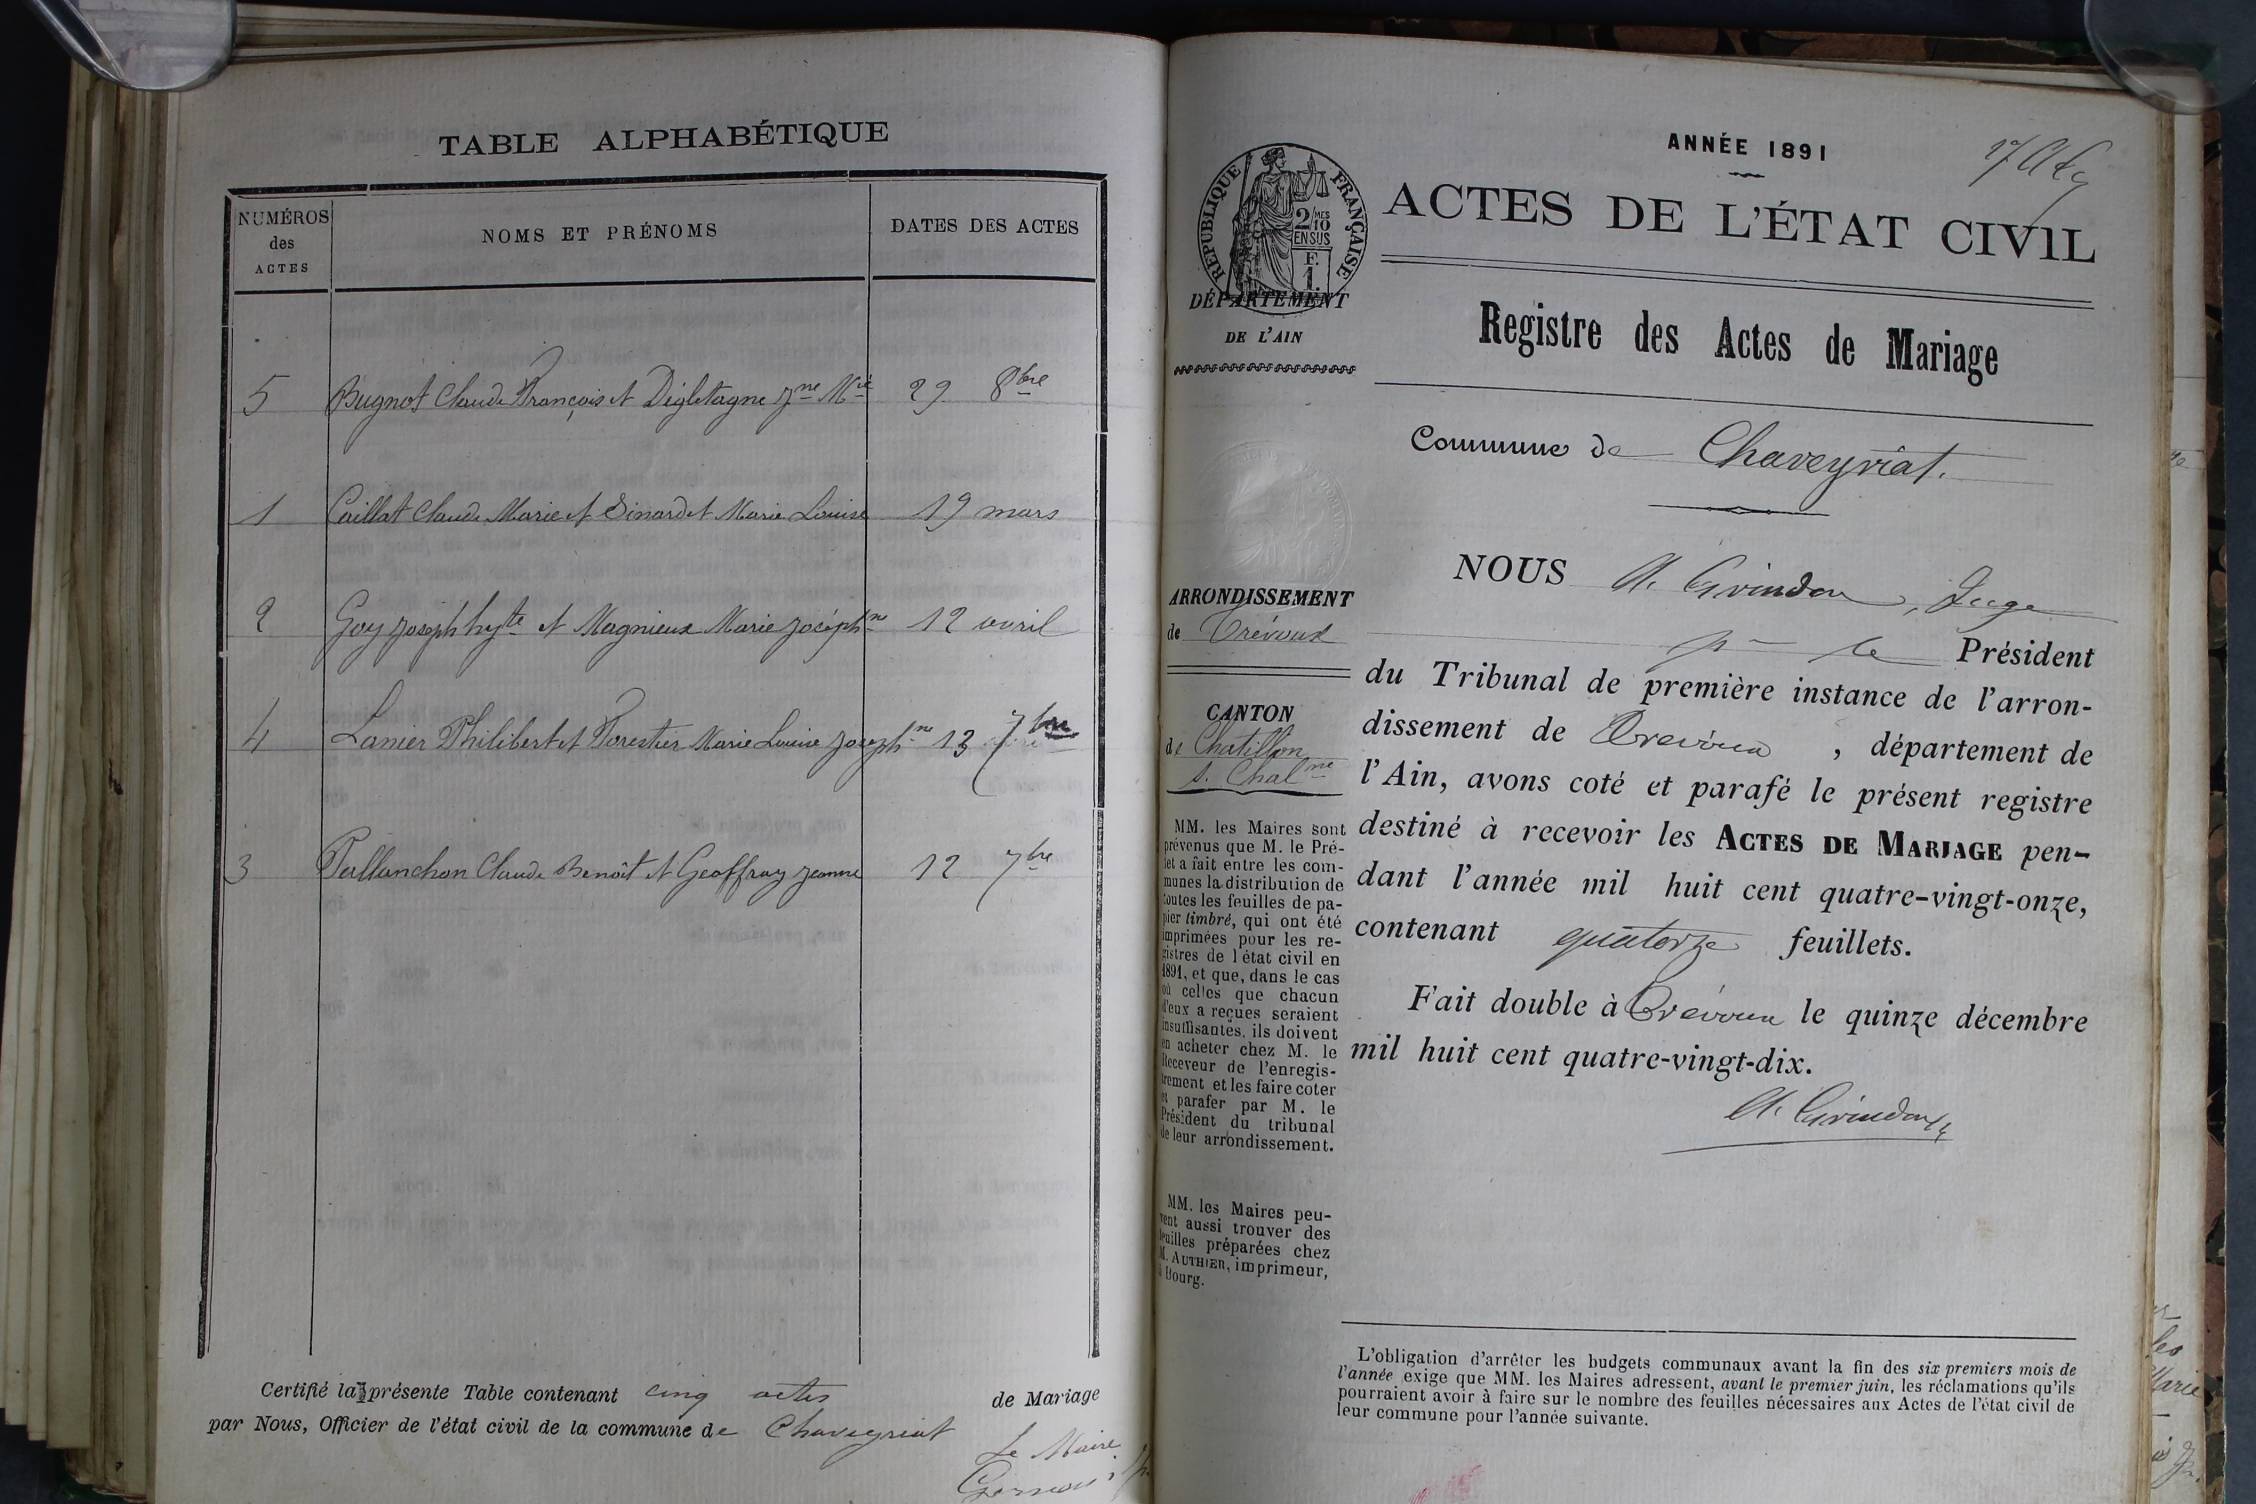 TABLE ALPHABÉTIQUE
NUMÉROS
des
ACTES
NOMS ET PRÉNOMS
DATES DES ACTES
5 Bugnot Claude François et Digletagne Jne Mie 29 8bre
1 Caillat Claude Marie et Sinardet Marie Louise 19 mars
2 Goy Joseph hyte et Magnieux Marie Joséphne 12 avril
4 Lanier Philibert et Forestier Marie Louise Josephne 13 7bre
3 Pallanchon Claude Benoît et Geoffray Jeanne 12 7bre
Certifié la présente Table contenant cinq actes de Mariage
par Nous, Officier de l'état civil de la commune de Chaveyriat
Le Maire
ANNÉE 1891
ACTES DE L'ÉTAT CIVIL
RÉPUBLIQUE FRANÇAISE
2/MES
10
EN SUS
F.
1.
DÉPARTEMENT
DE L'AIN
Registre des Actes de Mariage
Commune de Chaveyriat.
ARRONDISSEMENT
de Trévoux
CANTON
de Chatillon
s. Chalne
MM. les Maires sont
prévenus que M. le Pré-
fet a fait entre les com-
munes la distribution de
toutes les feuilles de pa-
pier timbré, qui ont été
imprimées pour les re-
gistres de l'état civil en
1891, et que, dans le cas
où celles que chacun
d'eux a reçues seraient
insuffisantes, ils doivent
en acheter chez M. le
Receveur de l'enregis-
trement et les faire coter
et parafer par M. le
Président du tribunal
de leur arrondissement.
MM. les Maires peu-
vent aussi trouver des
feuilles préparées chez
M. AUTHIER, imprimeur,
à Bourg.
NOUS A. Grindon, Juge
pr le Président
du Tribunal de première instance de l'arron-
dissement de Trévoux, département de
l'Ain, avons coté et parafé le présent registre
destiné à recevoir les ACTES DE MARIAGE pen-
dant l'année mil huit cent quatre-vingt-onze,
contenant quatorze feuillets.
Fait double à Trévoux le quinze décembre
mil huit cent quatre-vingt-dix.
A. Grindon
L'obligation d'arrêter les budgets communaux avant la fin des six premiers mois de
l'année exige que MM. les Maires adressent, avant le premier juin, les réclamations qu'ils
pourraient avoir à faire sur le nombre des feuilles nécessaires aux Actes de l'état civil de
leur commune pour l'année suivante.